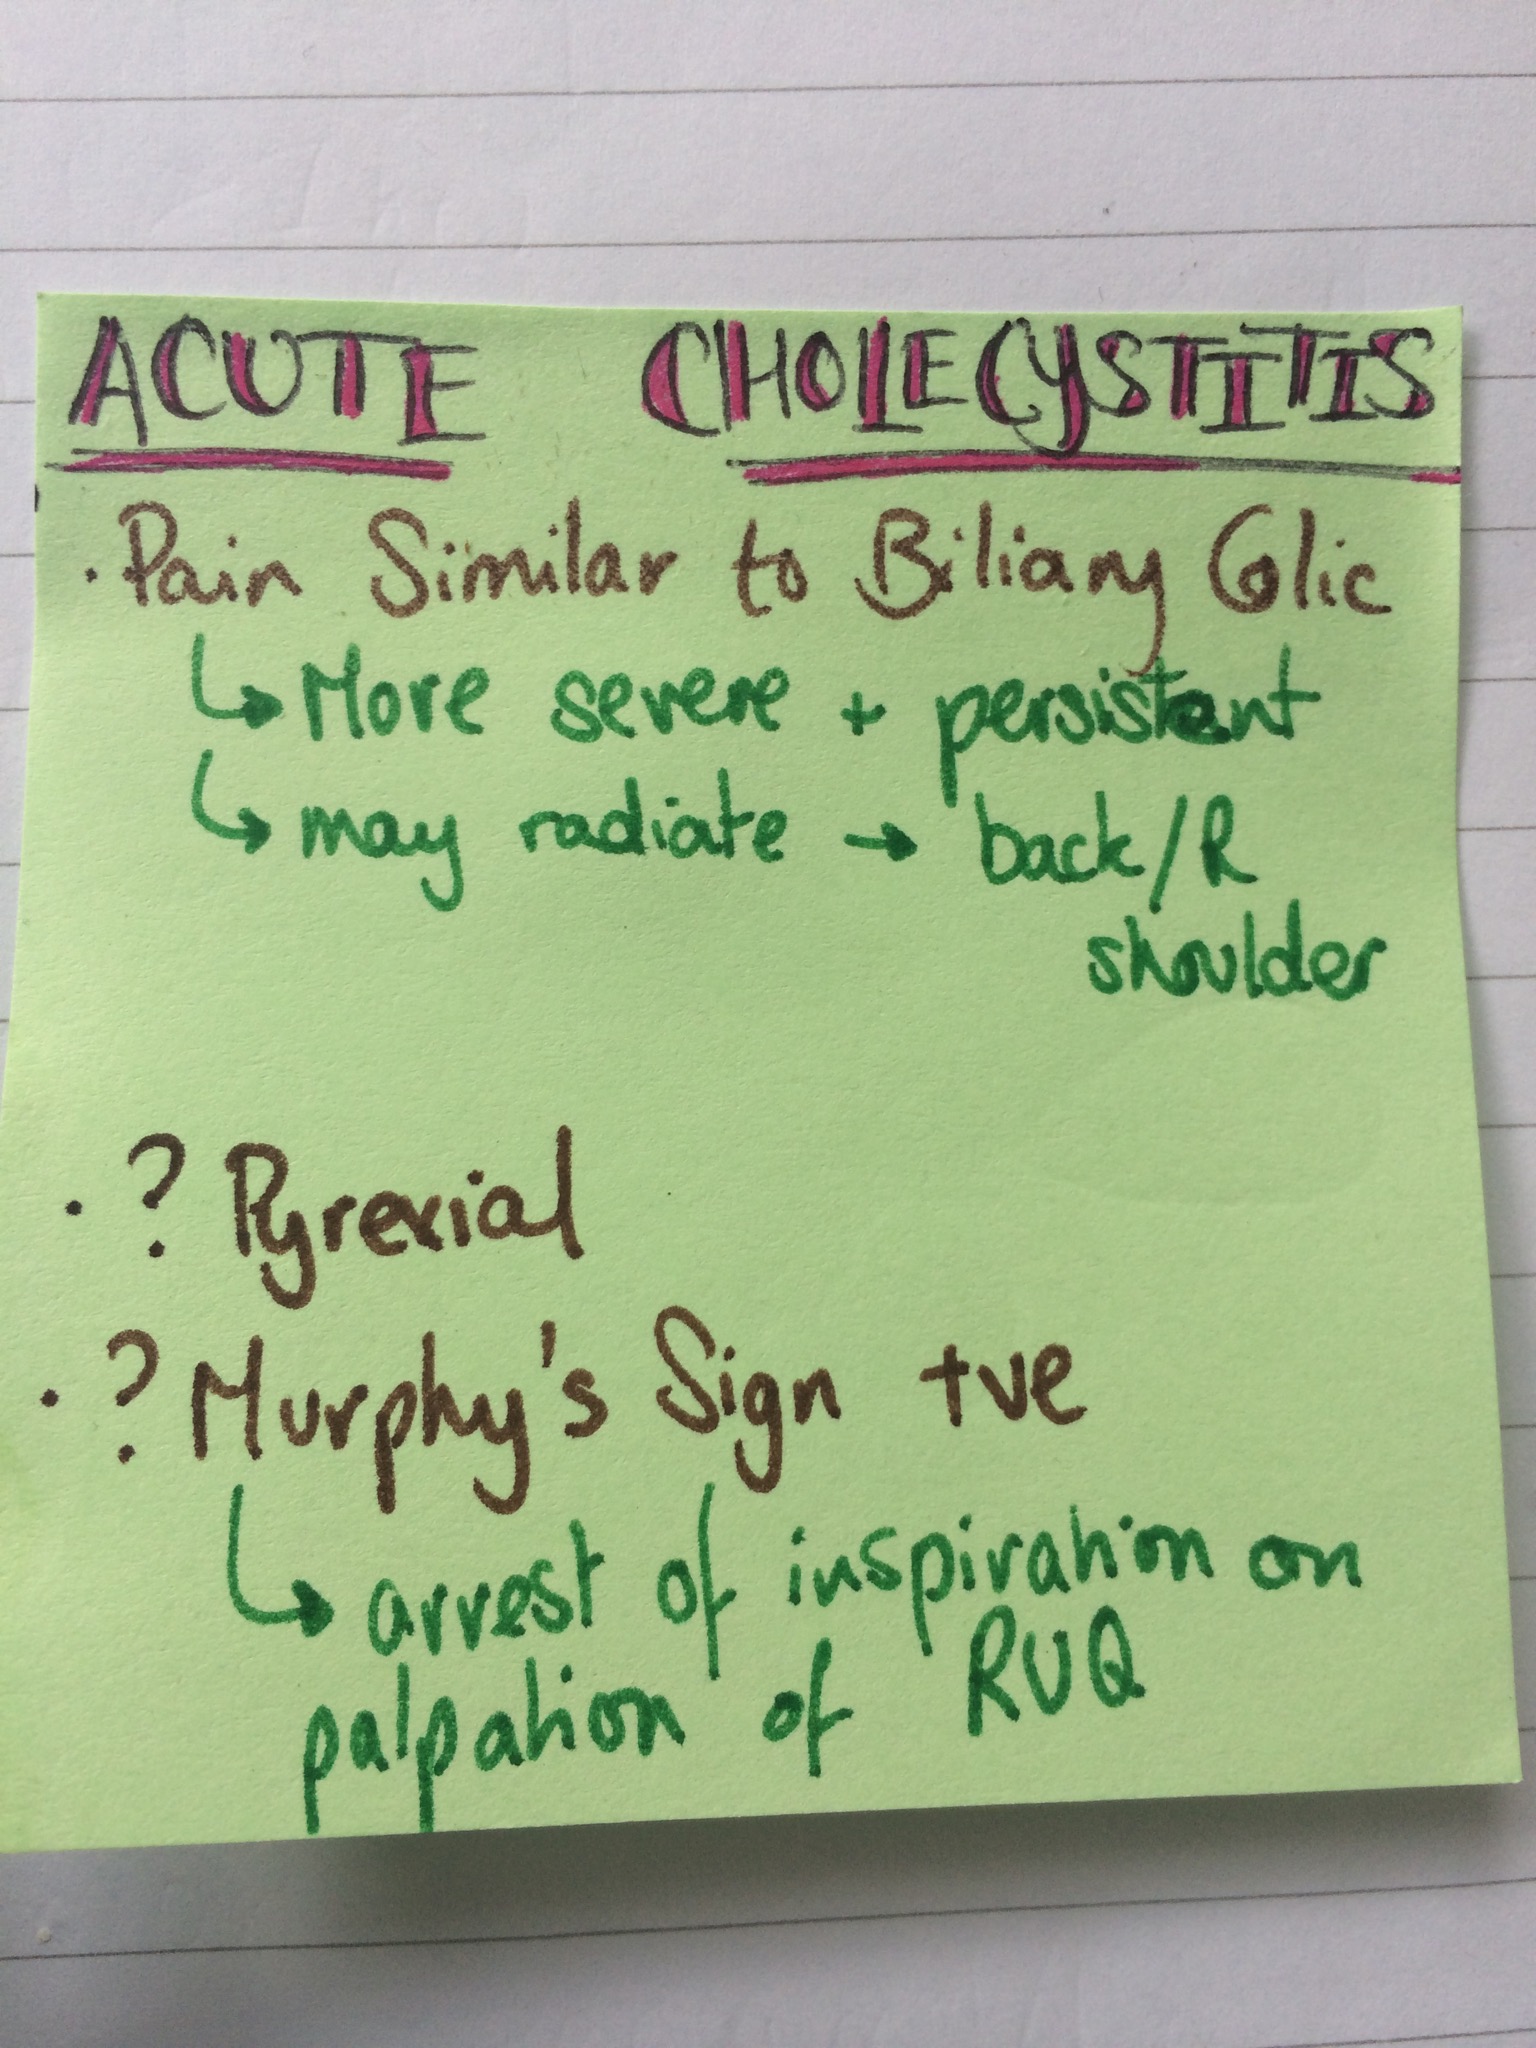 ACUTE CHOLECYSTITIS
· Pain Similar to Biliary Colic
↳ More severe + persistent
↳ may radiate → back/R
shoulder
· ? Pyrexial
· ? Murphy's Sign +ve
↳ arrest of inspiration on
palpation of RUQ